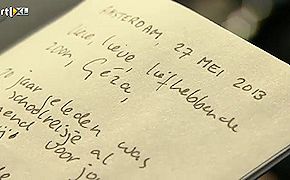 rtl XL
AMSTERDAM, 27 MEI 2013
lieve, liefhebbende
zoon, Géza,
jaar geleden was
schoolreisje al
voor